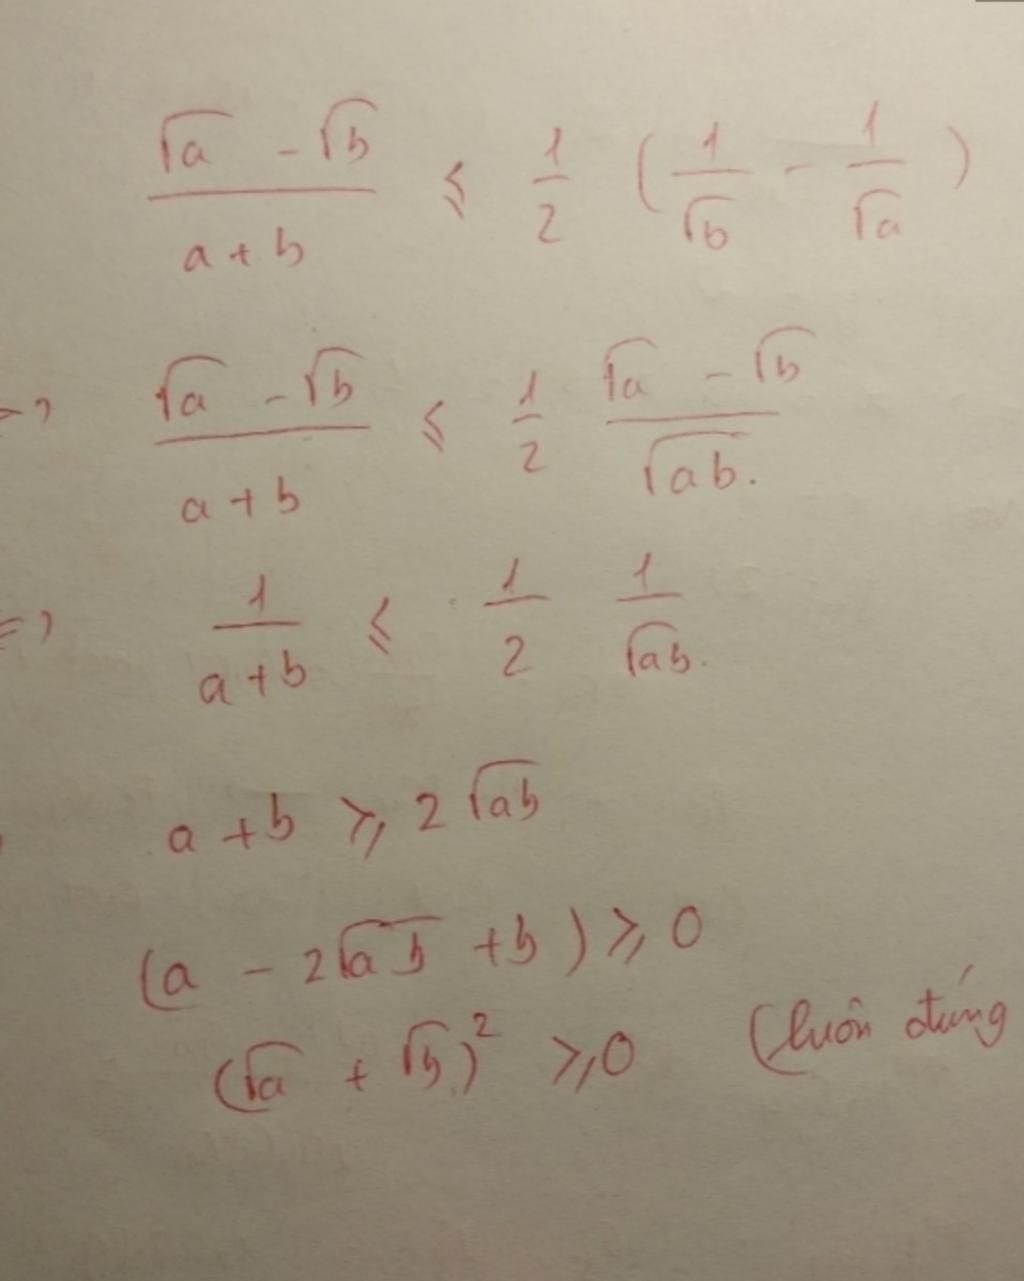 (√a - √b)/(a + b) ≤ 1/2 (1/√b - 1/√a)
=> (√a - √b)/(a + b) ≤ 1/2 (√a - √b)/√ab.
=> 1/(a + b) ≤ 1/2 1/√ab.
a + b ≥ 2√ab
(a - 2√ab + b) ≥ 0
(√a + √b)² ≥ 0 (luôn đúng